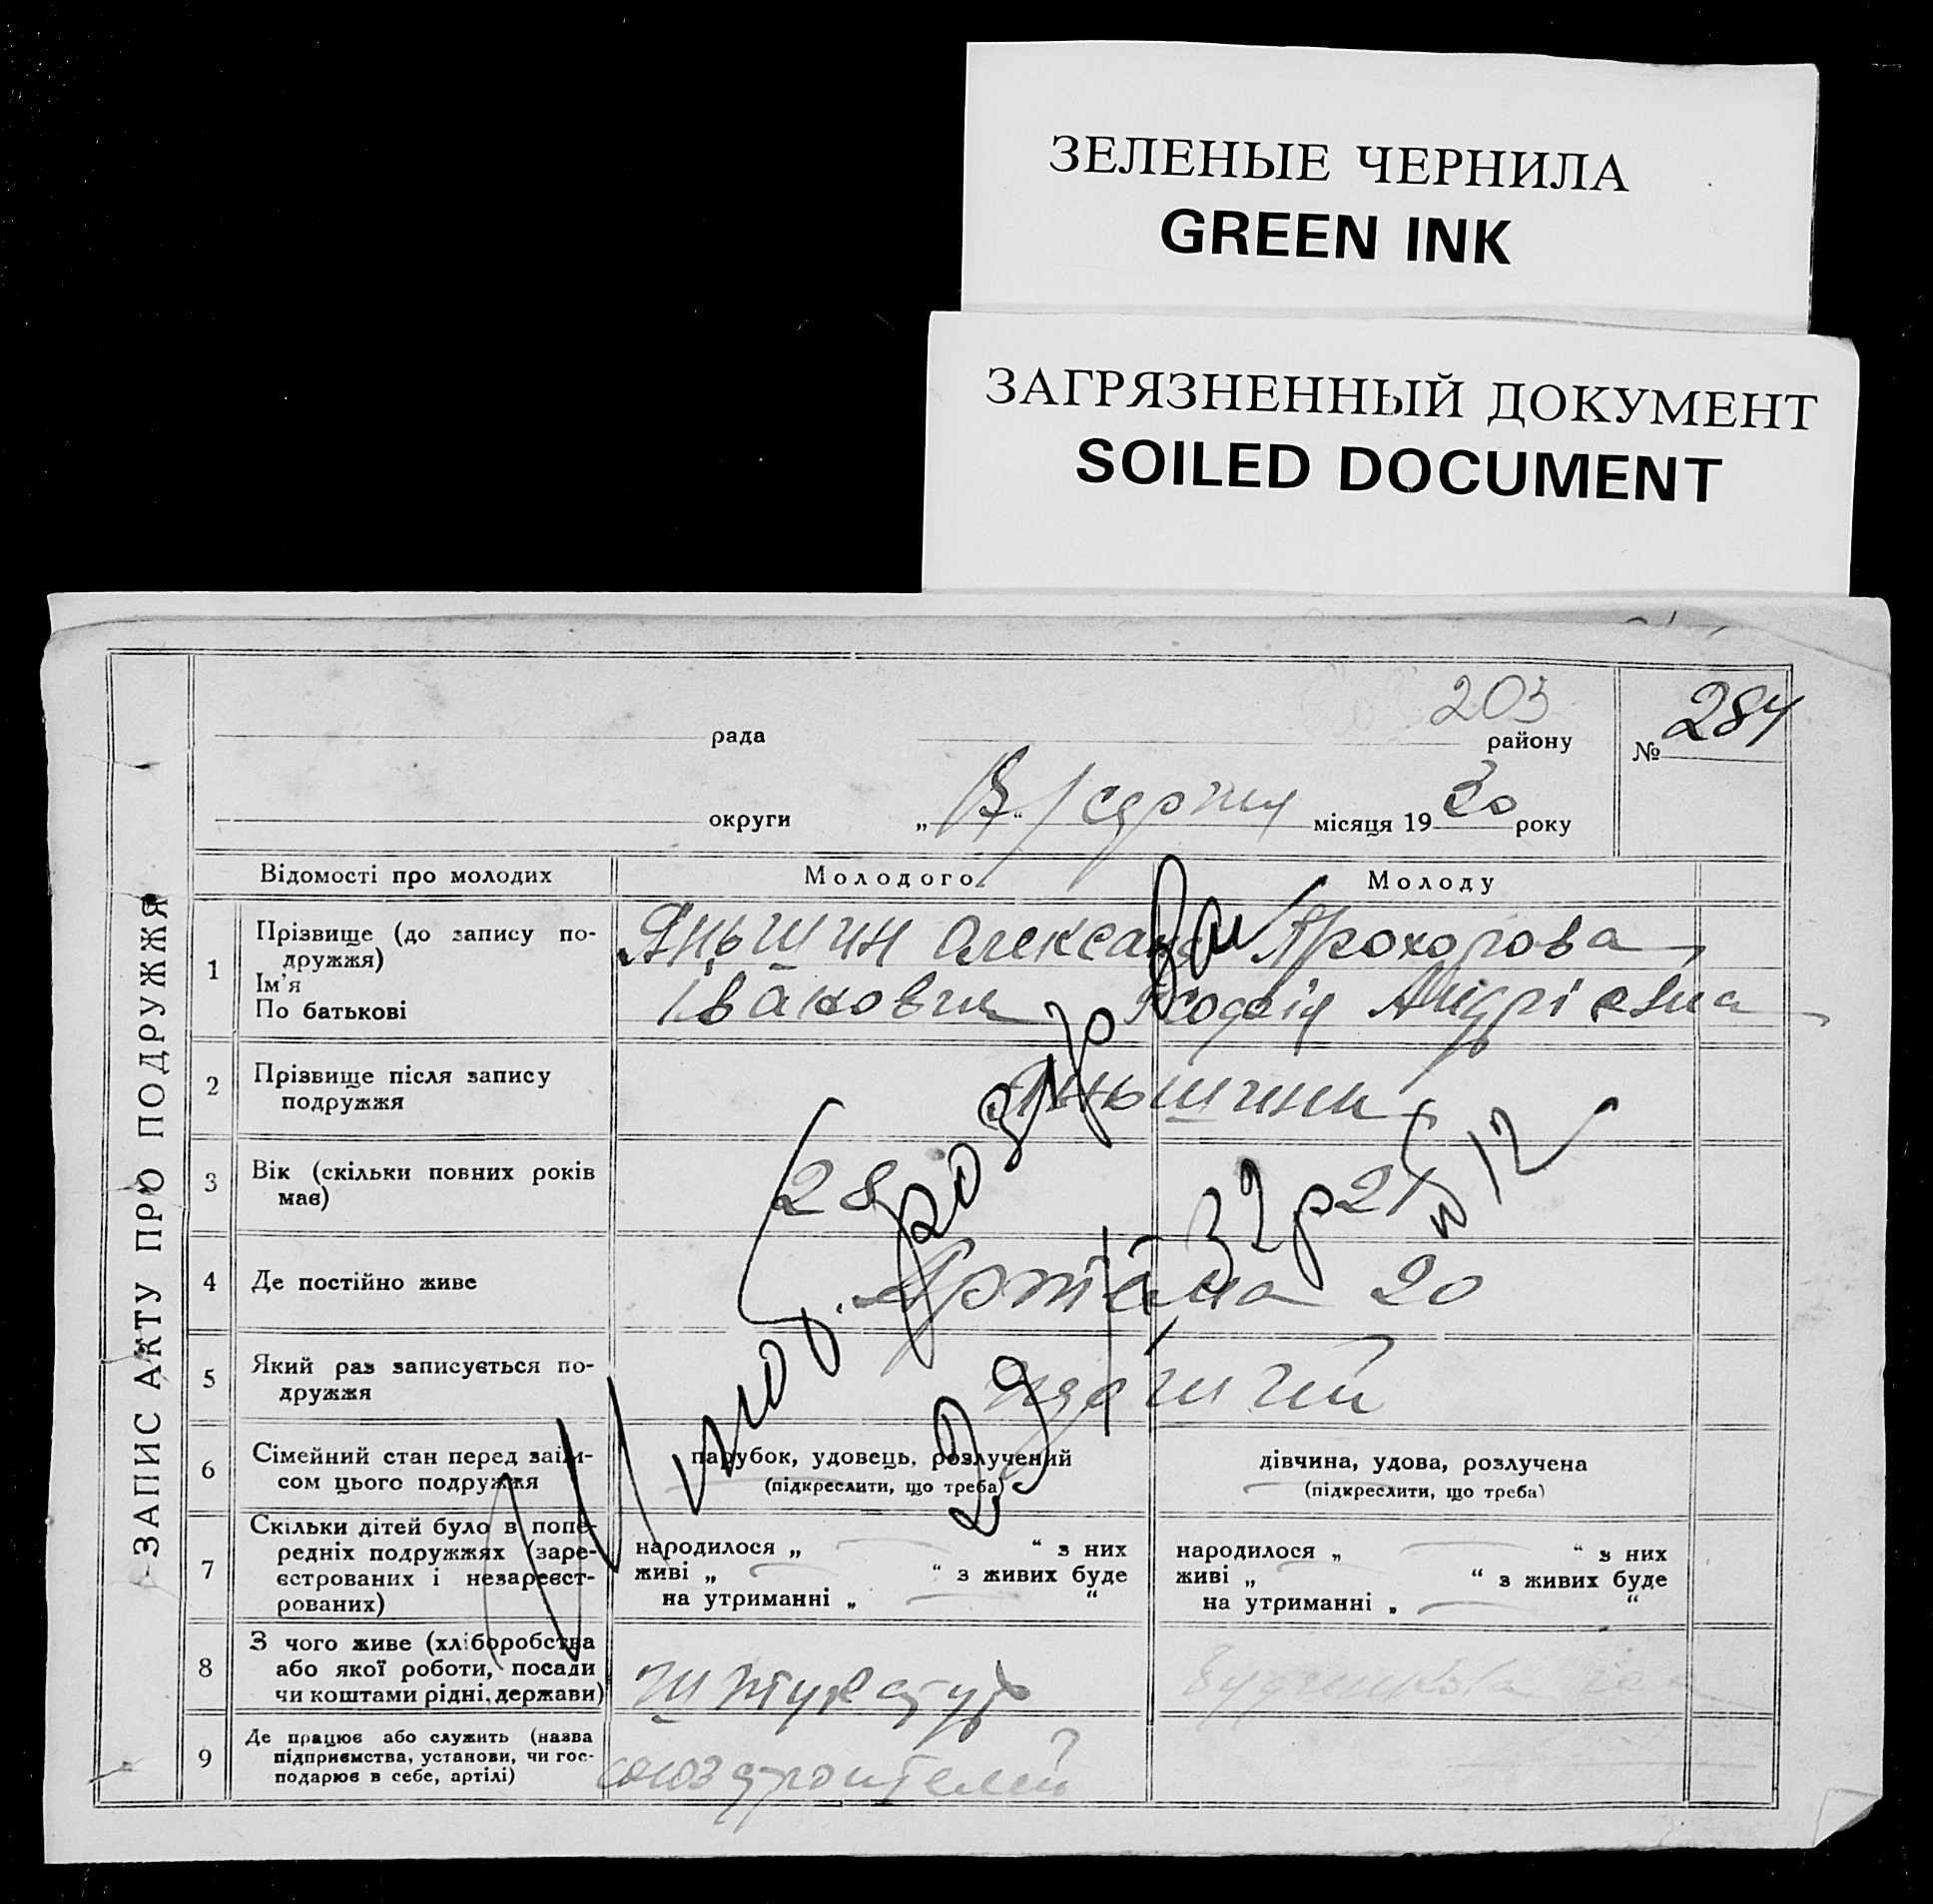 ЗЕЛЕНЫЕ ЧЕРНИЛА
GREEN INK
ЗАГРЯЗНЕННЫЙ ДОКУМЕНТ
SOILED DOCUMENT
ЗАПИС АКТУ ПРО ПОДРУЖЖЯ
203
рада району № 284
округи „ “ серпня місяця 1930 року
Відомості про молодих Молодого Молоду
1 Прізвище (до запису по-
дружжя)
Ім'я
По батькові
Яньшин Олександр Прохорова
Іванович Софія Андріевна
2 Прізвище після запису
подружжя
Яньшини
3 Вік (скільки повних років
має)
28 21
4 Де постійно живе
Артема 20
5 Який раз записується по-
дружжя
6 Сімейний стан перед запи-
сом цього подружжя
парубок, удовець, розлучений
(підкреслити, що треба)
дівчина, удова, розлучена
(підкреслити, що треба)
7 Скільки дітей було в попе-
редніх подружжях (заре-
єстрованих і незареєст-
рованих)
народилося „ “ з них
живі „ “ з живих буде
на утриманні „ “
народилося „ “ з них
живі „ “ з живих буде
на утриманні „ “
8 З чого живе (хліборобства
або якої роботи, посади
чи коштами рідні, держави)
штукатур
9 Де працює або служить (назва
підприємства, установи, чи гос-
подарює в себе, артілі)
союз строителей
Шлюб розірван
29/ 32р. № 12